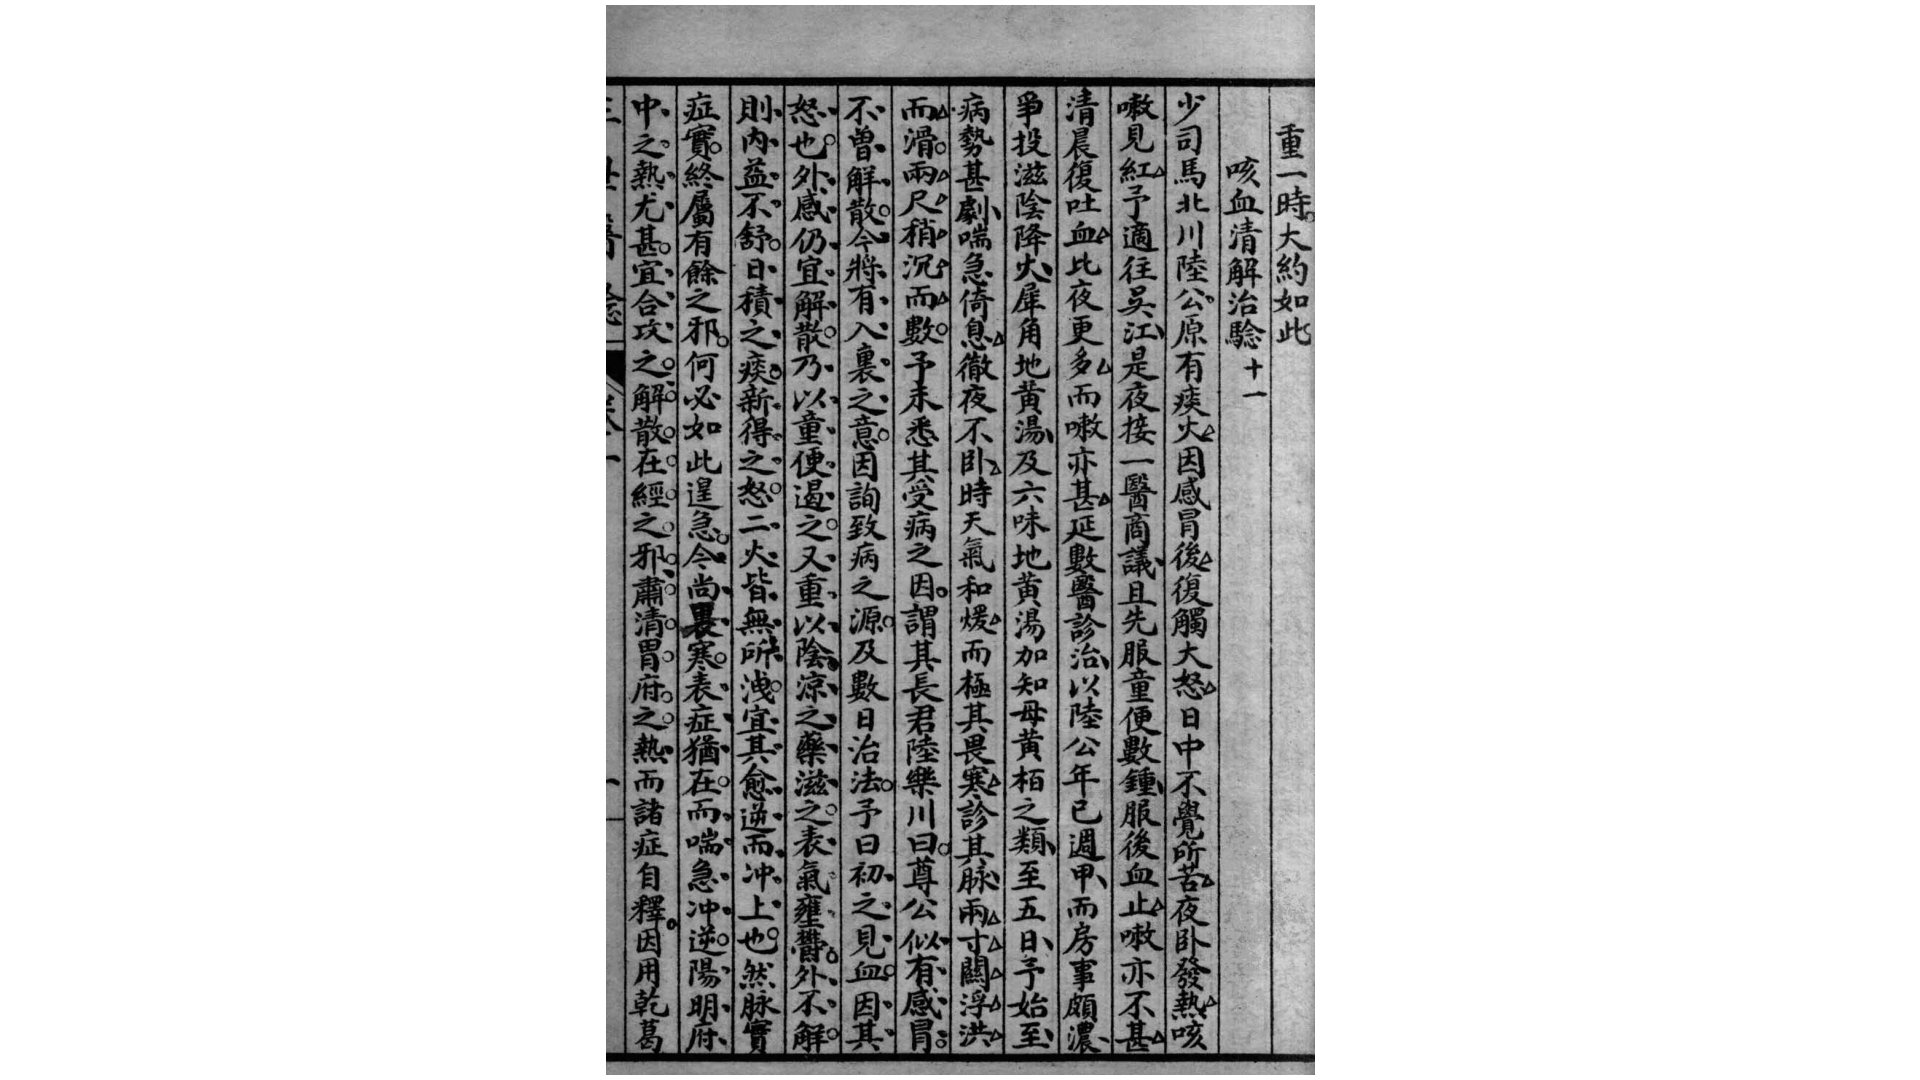 重一時大約如此
咳血清解治驗十一
少司馬北川陸公原有痰火因感冒後復觸大怒日中不覺所苦夜卧發熱咳
嗽見紅予適往吳江是夜接一醫商議且先服童便數鍾服後血止嗽亦不甚
清晨復吐血比夜更多而嗽亦甚延數醫診治以陸公年已週甲而房事頗濃
爭投滋陰降火犀角地黃湯及六味地黃湯加知母黃栢之類至五日予始至
病勢甚劇喘急倚息徹夜不卧時天氣和煖而極其畏寒診其脉兩寸關浮洪
而滑兩尺稍沉而數予未悉其受病之因謂其長君陸樂川曰尊公似有感冒
不曾解散今將有入裏之意因詢致病之源及數日治法予曰初之見血因其
怒也外感仍宜解散乃以童便遏之又重以陰涼之藥滋之表氣壅鬱外不解
則內益不舒日積之痰新得之怒二火皆無所洩宜其愈逆而冲上也然脉實
症實終屬有餘之邪何必如此遑急今尚裏寒表症猶在而喘急冲逆陽明府
中之熱尤甚宜合攻之解散在經之邪肅清胃府之熱而諸症自釋因用乾葛